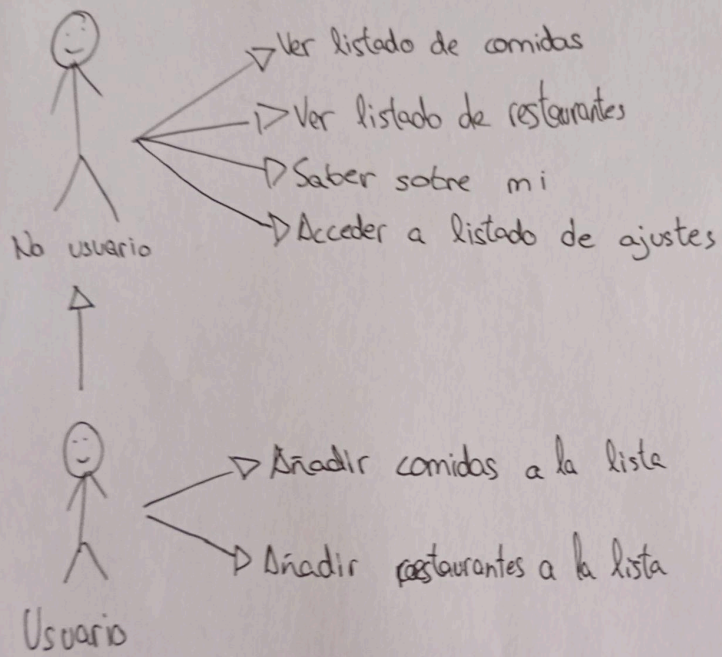 Ver listado de comidas
Ver listado de restaurantes
Saber sobre mi
Acceder a listado de ajustes
No usuario
Añadir comidas a la lista
Añadir restaurantes a la lista
Usuario